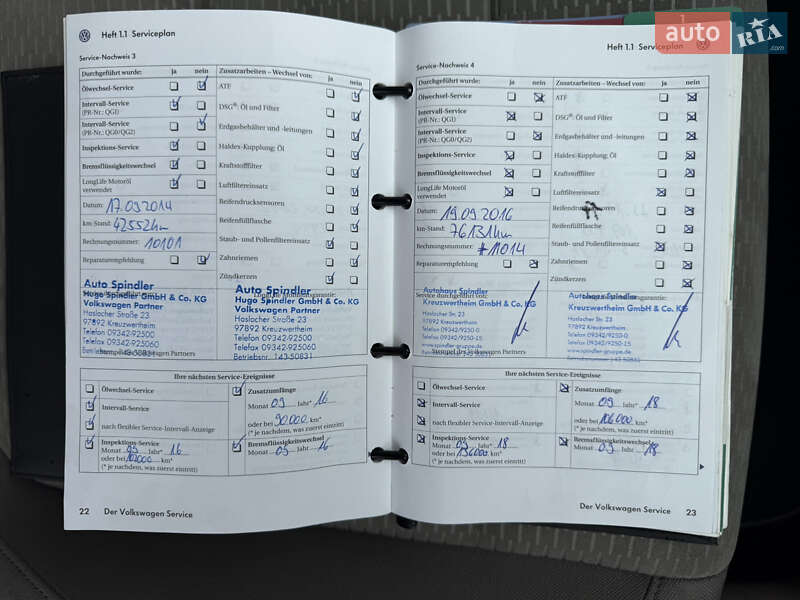 Heft 1.1 Serviceplan
Service-Nachweis 3
Durchgeführt wurde: ja nein
Ölwechsel-Service
Intervall-Service
(PR-Nr.: QGI)
Intervall-Service
(PR-Nr.: QG0/QG2)
Inspektions-Service
Bremsflüssigkeitswechsel
LongLife Motoröl
verwendet
Datum: 17.09.2014
km-Stand: 42552km
Rechnungsnummer: 10101
Reparaturempfehlung
Zusatzarbeiten – Wechsel von: ja nein
ATF
DSG®: Öl und Filter
Erdgasbehälter und -leitungen
Haldex-Kupplung: Öl
Kraftstofffilter
Luftfiltereinsatz
Reifendrucksensoren
Reifenfüllflasche
Staub- und Pollenfiltereinsatz
Zahnriemen
Zündkerzen
Auto Spindler
Hugo Spindler GmbH & Co. KG
Volkswagen Partner
Haslocher Straße 23
97892 Kreuzwertheim
Telefon 09342-92500
Telefax 09342-925060
Betriebsnr. 143-50831
Auto Spindler
Hugo Spindler GmbH & Co. KG
Volkswagen Partner
Haslocher Straße 23
97892 Kreuzwertheim
Telefon 09342-92500
Telefax 09342-925060
Betriebsnr. 143-50831
Ihre nächsten Service-Ereignisse
Ölwechsel-Service
Intervall-Service
nach flexibler Service-Intervall-Anzeige
Inspektions-Service
Monat 09 Jahr* 16
oder bei km*
(* je nachdem, was zuerst eintritt)
Zusatzumfänge
Monat 09 Jahr* 16
oder bei 90.000 km*
(* je nachdem, was zuerst eintritt)
Bremsflüssigkeitswechsel
Monat 09 Jahr 16
22 Der Volkswagen Service
Heft 1.1 Serviceplan
Service-Nachweis 4
Durchgeführt wurde: ja nein
Ölwechsel-Service
Intervall-Service
(PR-Nr.: QGI)
Intervall-Service
(PR-Nr.: QG0/QG2)
Inspektions-Service
Bremsflüssigkeitswechsel
LongLife Motoröl
verwendet
Datum: 19.09.2016
km-Stand: 76131km
Rechnungsnummer: #11014
Reparaturempfehlung
Service durchgeführt von:
Zusatzarbeiten – Wechsel von: ja nein
ATF
DSG®: Öl und Filter
Erdgasbehälter und -leitungen
Haldex-Kupplung: Öl
Kraftstofffilter
Luftfiltereinsatz
Reifendrucksensoren
Reifenfüllflasche
Staub- und Pollenfiltereinsatz
Zahnriemen
Zündkerzen
Autohaus Spindler
Kreuzwertheim GmbH & Co. KG
Haslocher Str. 23
97892 Kreuzwertheim
Telefon 09342/9250-0
Telefax 09342/9250-15
www.spindler-gruppe.de
Stempel des Volkswagen Partners
Autohaus Spindler
Kreuzwertheim GmbH & Co. KG
Haslocher Str. 23
97892 Kreuzwertheim
Telefon 09342/9250-0
Telefax 09342/9250-15
www.spindler-gruppe.de
Betriebsnummer 143 50831
Ihre nächsten Service-Ereignisse
Ölwechsel-Service
Intervall-Service
nach flexibler Service-Intervall-Anzeige
Inspektions-Service
Monat 09 Jahr* 18
oder bei 136000 km*
(* je nachdem, was zuerst eintritt)
Zusatzumfänge
Monat 09 Jahr* 18
oder bei 106000 km*
(* je nachdem, was zuerst eintritt)
Bremsflüssigkeitswechsel
Monat 09 Jahr 18
Der Volkswagen Service 23
auto RIA.com